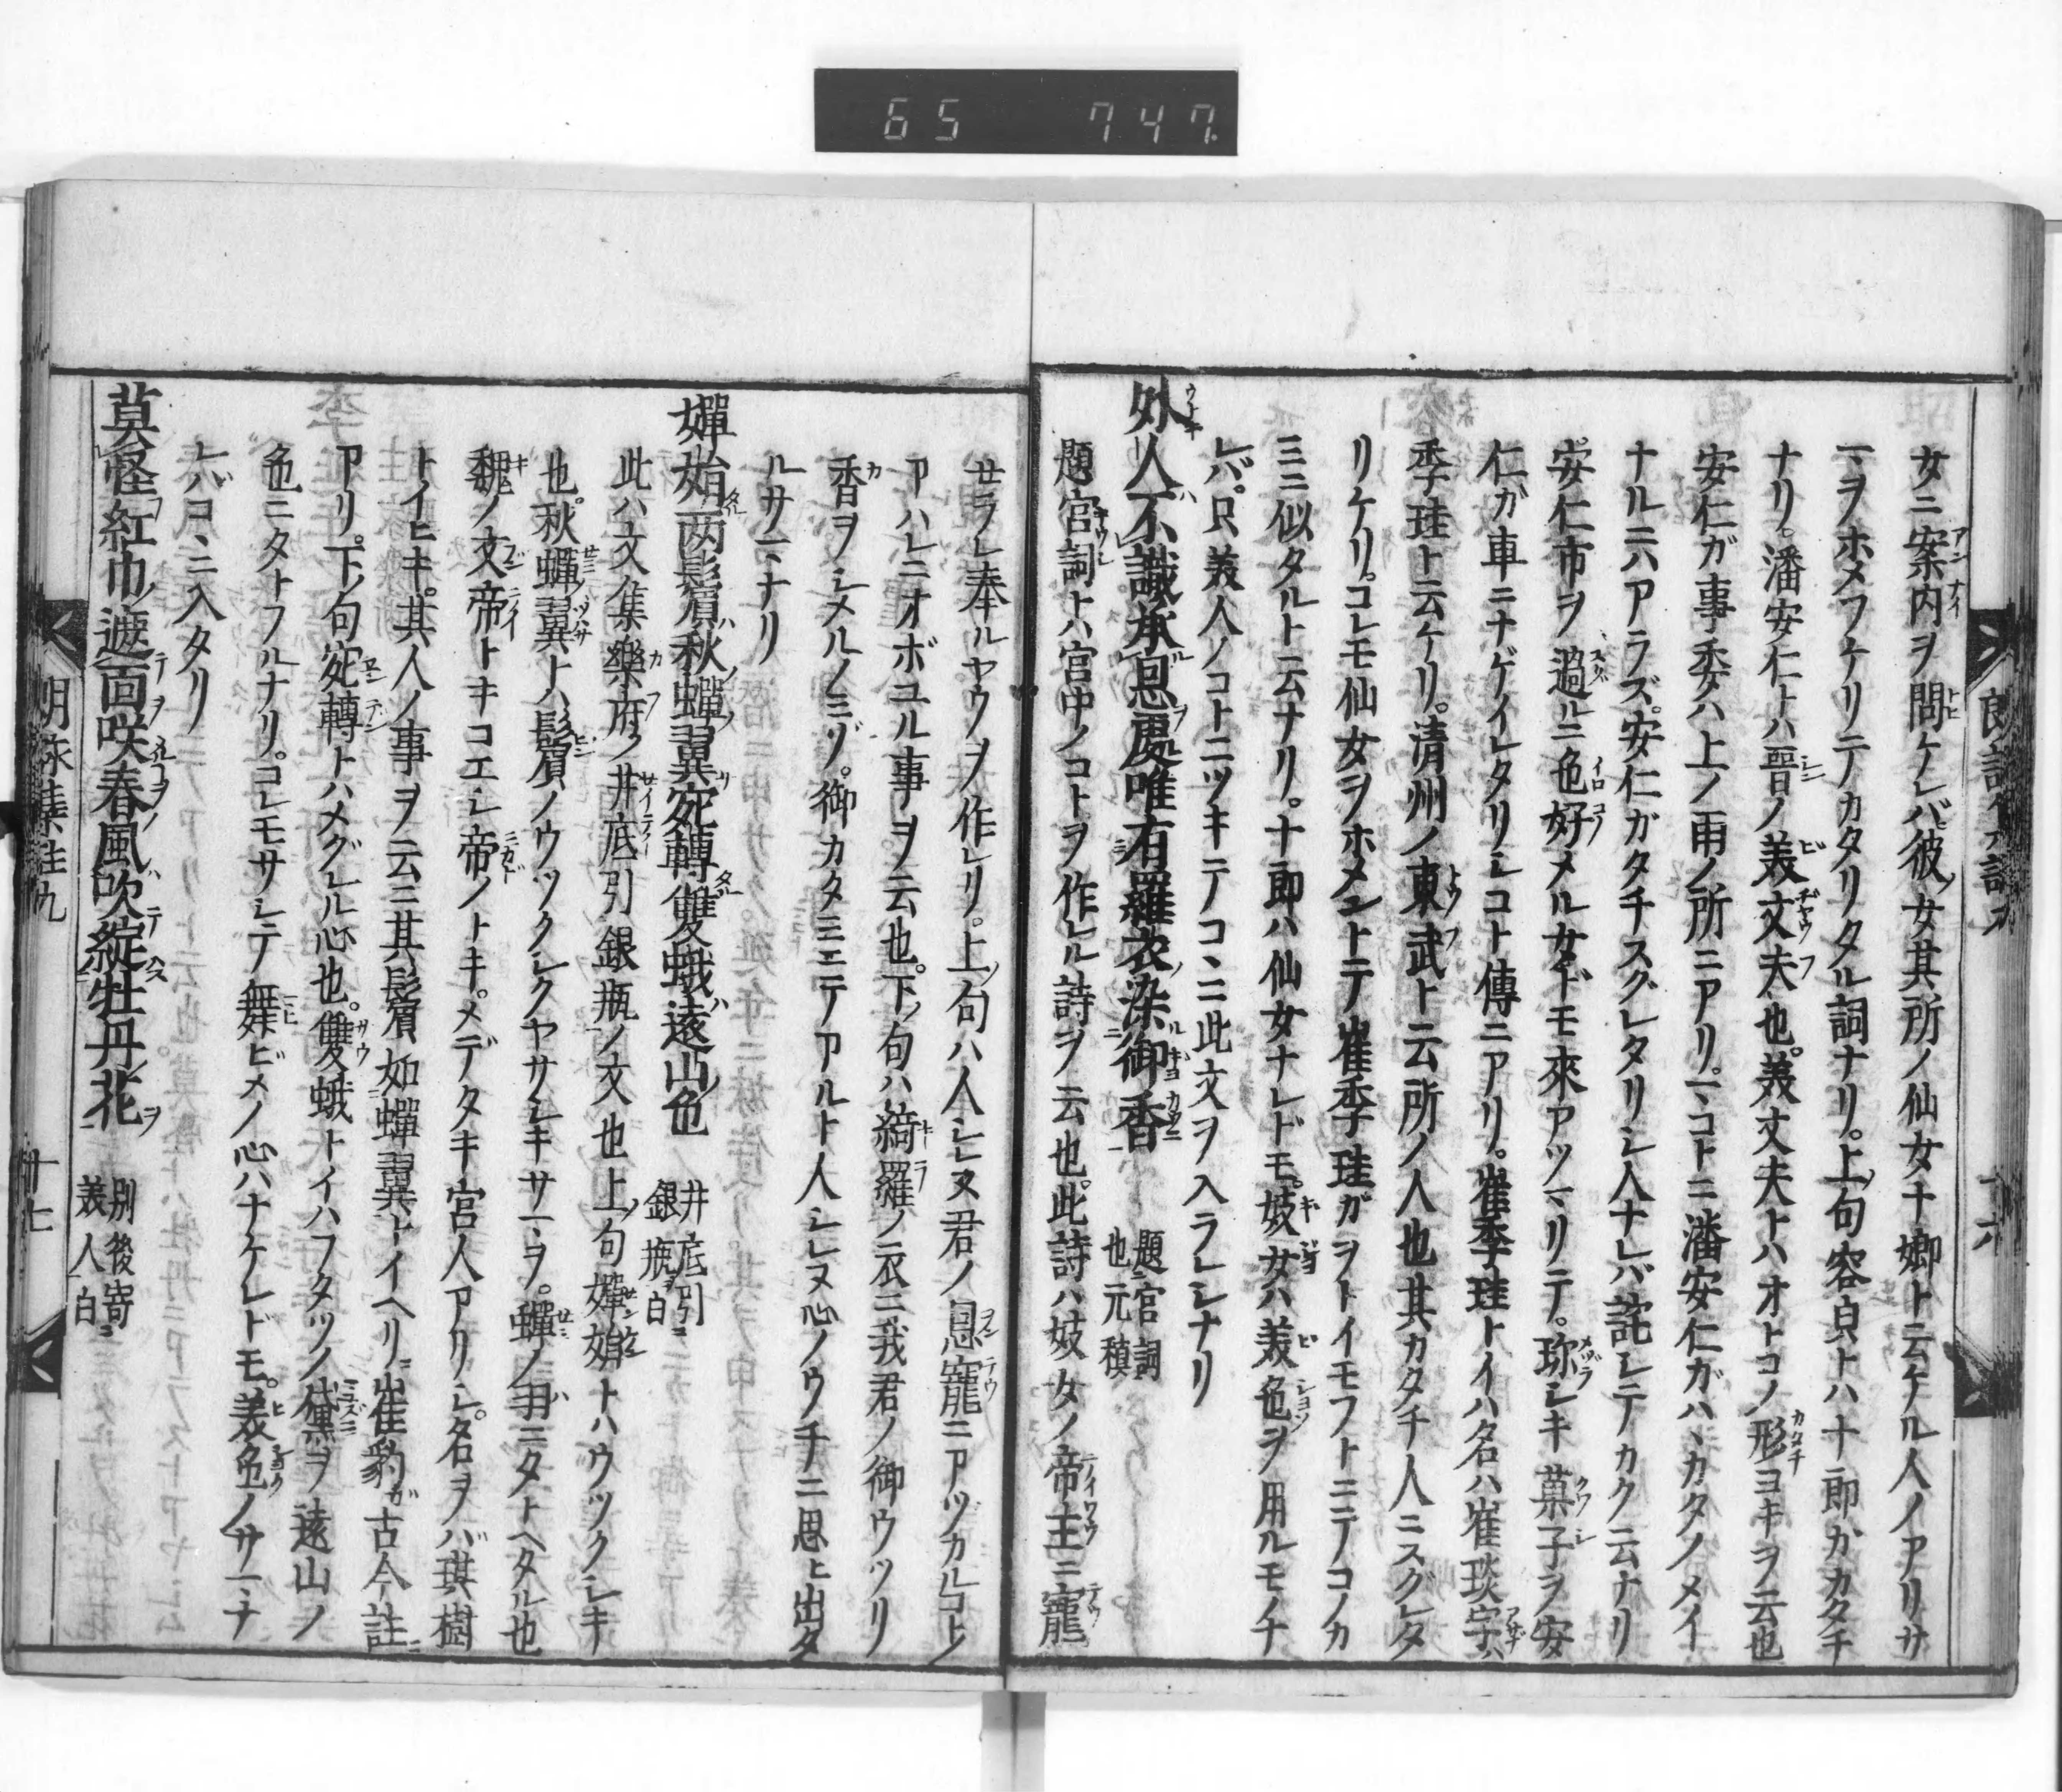 65 747.
女ニ案内ヲ問ケレバ彼ノ女其所ノ仙女ナ十娘ト云ケル人ノアリサ
マヲホメツケリテカタリタル詞ナリ。上ノ句容皃トハ十郎カカタチ
ナリ。潘安仁トハ晋ノ美丈夫也。美丈夫トハオトコノ形ヨキヲ云也
安仁ガ事委クハ上ノ雨ノ所ニアリ。マコトニ潘安仁ガハヽカタノメイ
ナルニハアラズ。安仁ガタチスグレタリシ人ナレバ詫シテカク云ナリ
安仁市ヲ過ルニ色好メル女ドモ來アツマリテ。珍シキ菓子ヲ安
仁ガ車ニナゲイレタリシコト傳ニアリ。崔季珪トイハ名ハ崔琰字ハ
季珪ト云ケリ。清州ノ東武ト云所ノ人也其カタチ人ニスグレタ
リケリ。コレモ仙女ヲホメントテ崔季珪ガヲトイモフトニテコノカ
ミニ似タルト云ナリ。十郎ハ仙女ナレドモ。妓女ハ美色ヲ用ルモノナ
レバ。只美人ノコトニツキテノコヽニ此文ヲ入ラレシナリ
外人不識承恩處唯有羅衣染御香 題宮詞也元稹
題宮詞トハ宮中ノコトヲ作レル詩ヲ云也。此詩ハ妓女ノ帝王ニ寵
セラレ奉ルヤウノヲ作レリ。上ノ句ハ人シレヌ君ノ恩寵ニアヅカルコトノ
アハレニオボユル事ヲ云也。下ノ句ハ綺羅ノ衣ニ我君ノ御ウツリ
香ヲシメルノミゾ。御カタミエテアルト人シレヌ心ノウチニ思ヒ出タ
ルサマナリ
嬋娟両鬢秋蟬翼宛轉雙蛾遠山色 井底引銀瓶白
此ハ文集樂府ノ井底引銀瓶ノ文也上ノ句嬋娟トハウツクシキ
也。秋蟬ノ翼トハ鬢ノウツクシクヤサシキサマヲ。蟬ノ羽ニタトヘタル也
魏ノ文帝トキコエシ帝ノトキ。メデタキ宮人アリシ。名ヲバ琪樹
トイヒキ。其人ノ事ヲ云ニ其鬢如蟬翼トイヘリ。崔豹ガ古今註ニ
アリ。下ノ句宛轉トハメグレル心也。雙蛾トイハフタツノ黛ヲ遠山ノ
色ニタトフルナリ。コレモサシテ舞ビメノ心ハナケレドモ。美色ノサマナ
レバコヽニ入タリ
莫怪紅巾遮面咲春風吹綻牡丹花 別後寄美人白